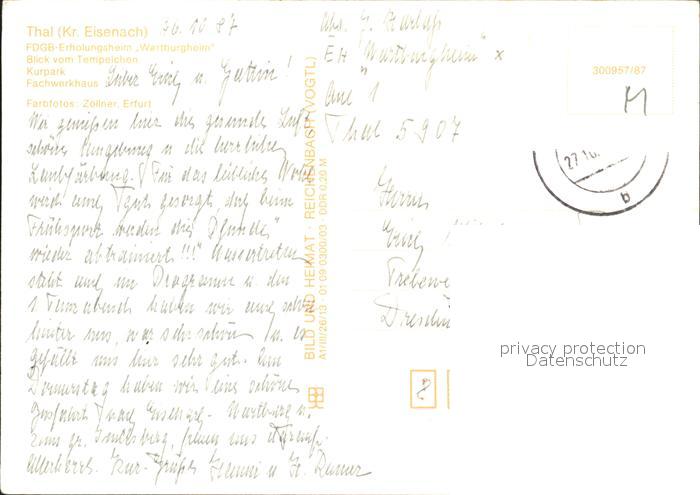 Thal (Kr. Eisenach) 26.10.87
FDGB-Erholungsheim „Wartburgheim"
Blick vom Tempelchen
Kurpark
Fachwerkhaus
Farbfotos: Zöllner, Erfurt
Lieber Erich u. Gattin!
Wir genießen hier die gesunde Luft
schöne Umgebung u. die herrliche
Laubfärbung. Für das leibliche Wohl
wird auch gut gesorgt, doch beim
Frühsport werden die Pfunde
wieder abtrainiert!!! Wassertreten
steht auch im Programm u. den
1 Tanzabend haben wir auch schon
hinter uns, war sehr schön u. es
gefällt uns hier sehr gut. Am
Donnerstag haben wir eine schöne
Busfahrt nach Eisenach - Wartburg u.
zum gr. Inselsberg, freuen uns
Allerherzl. Kur-Grüße
BILD UND HEIMAT · REICHENBACH (VOGTL)
A1/III/26/13 · 01 09 0300/03 · DDR 0,20 M
Abs.
EH "Wartburgheim"
Thal 5907
300957/87
27.10.
b
Herrn
Erich
Dresden
privacy protection
Datenschutz